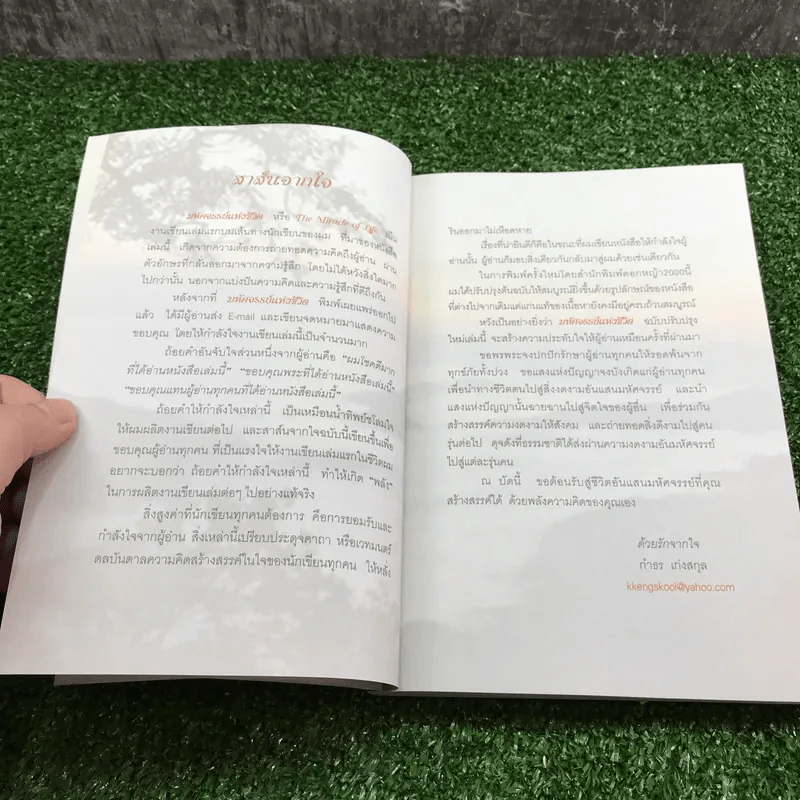 สาส์นจากใจ
มหัศจรรย์แห่งชีวิต หรือ The Miracle of Life เป็น
งานเขียนเล่มแรกบนเส้นทางนักเขียนของผม ที่มาของหนังสือ
เล่มนี้ เกิดจากความต้องการถ่ายทอดความคิดถึงผู้อ่าน ผ่าน
ตัวอักษรที่กลั่นออกมาจากความรู้สึก โดยไม่ได้หวังสิ่งใดมาก
ไปกว่านั้น นอกจากแบ่งปันความคิดและความรู้สึกที่ดีถึงกัน
หลังจากที่ มหัศจรรย์แห่งชีวิต พิมพ์เผยแพร่ออกไป
แล้ว ได้มีผู้อ่านส่ง E-mail และเขียนจดหมายมาแสดงความ
ขอบคุณ โดยให้กำลังใจงานเขียนเล่มนี้เป็นจำนวนมาก
ถ้อยคำอันจับใจส่วนหนึ่งจากผู้อ่านคือ “ผมโชคดีมาก
ที่ได้อ่านหนังสือเล่มนี้” “ขอบคุณพระที่ได้อ่านหนังสือเล่มนี้”
“ขอบคุณแทนผู้อ่านทุกคนที่ได้อ่านหนังสือเล่มนี้”
ถ้อยคำให้กำลังใจเหล่านี้ เป็นเหมือนน้ำทิพย์ชโลมใจ
ให้ผมผลิตงานเขียนต่อไป และสาส์นจากใจฉบับนี้เขียนขึ้นเพื่อ
ขอบคุณผู้อ่านทุกคน ที่เป็นแรงใจให้งานเขียนเล่มแรกในชีวิตผม
อยากจะบอกว่า ถ้อยคำให้กำลังใจเหล่านี้ ทำให้เกิด “พลัง”
ในการผลิตงานเขียนเล่มต่อๆ ไปอย่างแท้จริง
สิ่งสูงค่าที่นักเขียนทุกคนต้องการ คือการยอมรับและ
กำลังใจจากผู้อ่าน สิ่งเหล่านี้เปรียบประดุจคาถา หรือเวทมนตร์
ดลบันดาลความคิดสร้างสรรค์ในใจของนักเขียนทุกคน ให้หลั่ง
รินออกมาไม่เหือดหาย
เรื่องที่น่ายินดีก็คือในขณะที่ผมเขียนหนังสือให้กำลังใจผู้
อ่านนั้น ผู้อ่านก็มอบสิ่งเดียวกันกลับมาสู่ผมด้วยเช่นเดียวกัน
ในการพิมพ์ครั้งใหม่โดยสำนักพิมพ์ดอกหญ้า2000นี้
ผมได้ปรับปรุงต้นฉบับให้สมบูรณ์ยิ่งขึ้นด้วยรูปลักษณ์ของหนังสือ
ที่ต่างไปจากเดิมแต่แก่นแท้ของเนื้อหายังคงมีอยู่ครบถ้วนสมบูรณ์
หวังเป็นอย่างยิ่งว่า มหัศจรรย์แห่งชีวิต ฉบับปรับปรุง
ใหม่เล่มนี้ จะสร้างความประทับใจให้ผู้อ่านเหมือนครั้งที่ผ่านมา
ขอพรพระจงปกปักรักษาผู้อ่านทุกคนให้รอดพ้นจาก
ทุกข์ภัยทั้งปวง ขอแสงแห่งปัญญาจงบังเกิดแก่ผู้อ่านทุกคน
เพื่อนำทางชีวิตตนไปสู่สิ่งงดงามอันแสนมหัศจรรย์ และนำ
แสงแห่งปัญญานั้นฉายฉานไปสู่จิตใจของผู้อื่น เพื่อร่วมกัน
สร้างสรรค์ความงดงามให้สังคม และถ่ายทอดสิ่งดีงามไปสู่คน
รุ่นต่อไป ดุจดังที่ธรรมชาติได้ส่งผ่านความงดงามอันมหัศจรรย์
ไปสู่แต่ละรุ่นคน
ณ บัดนี้ ขอต้อนรับสู่ชีวิตอันแสนมหัศจรรย์ที่คุณ
สร้างสรรค์ได้ ด้วยพลังความคิดของคุณเอง
ด้วยรักจากใจ
กำธร เก่งสกุล
kkengskool@yahoo.com